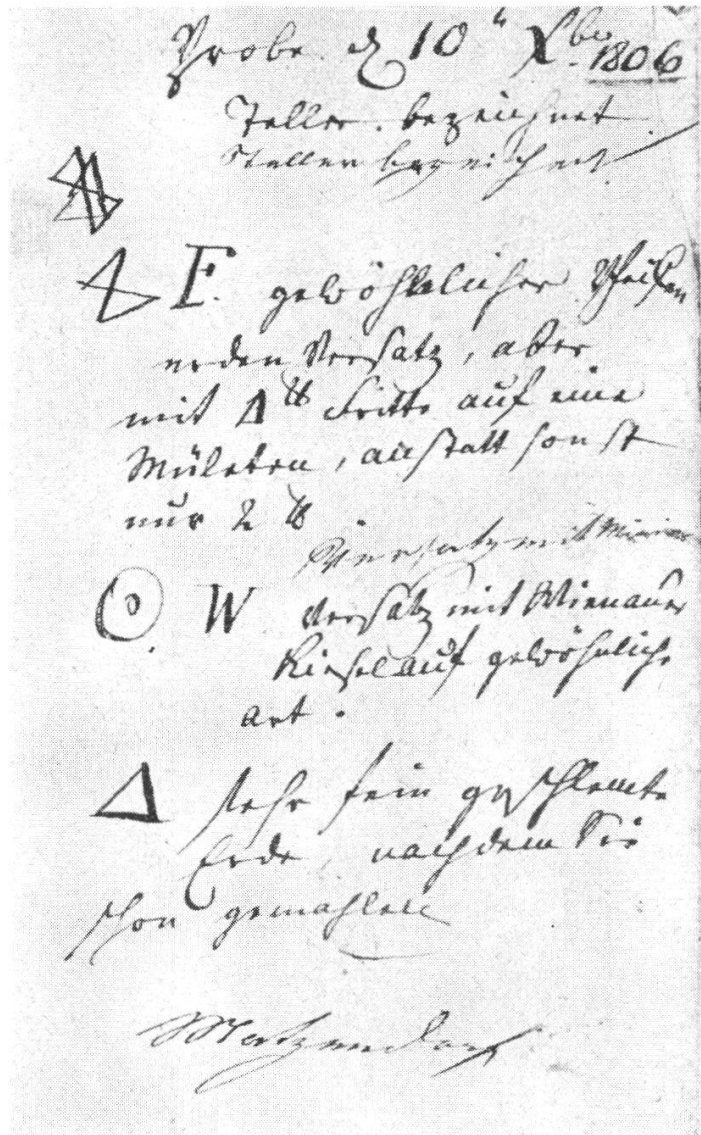 Probe d 10ᵗ Xbr 1806
Teller bezeichnet
Teller bezeichnet
F. gewöhnlicher Pfeifen
erden Versatz, aber
mit 4 ℔ Fritte auf eine
Mületen, anstatt sonst
nur 2 ℔
Versatz mit
W Versatz mit Wienauer
Kiesel auf gewöhnliche
art.
sehr fein geschlemte
Erde, nachdem Sie
schon gemahlen
Matzendorf